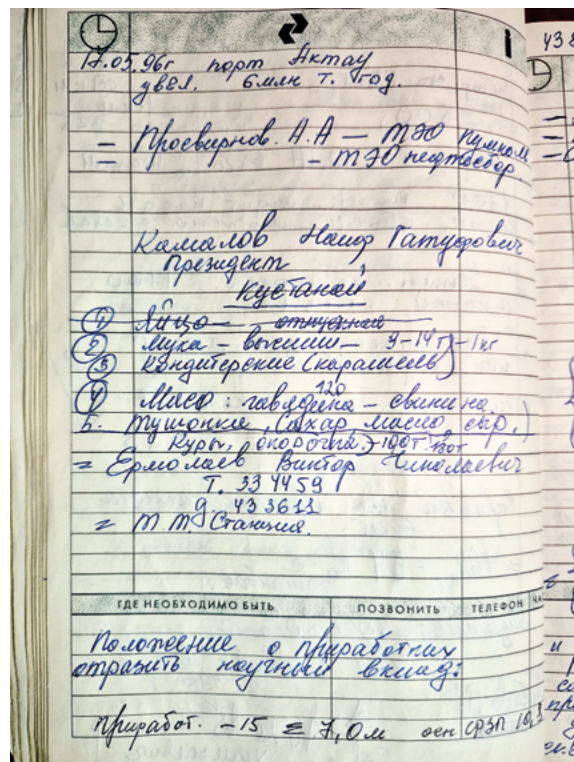 17.05.96г порт Актау
увел. 6 млн т. год.
– Просвирнов. А.А – ТЭО
= – ТЭО нефтесбор.
Камалов Наиф Гатуфович
президент
Кустанай
① Яйцо – отпускная
② Мука – высший – 9-14т – 1кг
③ Кондитерские (карамель)
120
④ Мясо: говядина – свинина.
5. Тушонка, Сахар, масло сыр,
Куры, окорочка, 100т
= Ермолаев Виктор Николаевич
Т. 334459
д. 433611
= М.М. Станция.
ГДЕ НЕОБХОДИМО БЫТЬ ПОЗВОНИТЬ ТЕЛЕФОН
Положение о приработках
отразить научный вклад:
приработ. – 15 = 7,0м осн СРЗП